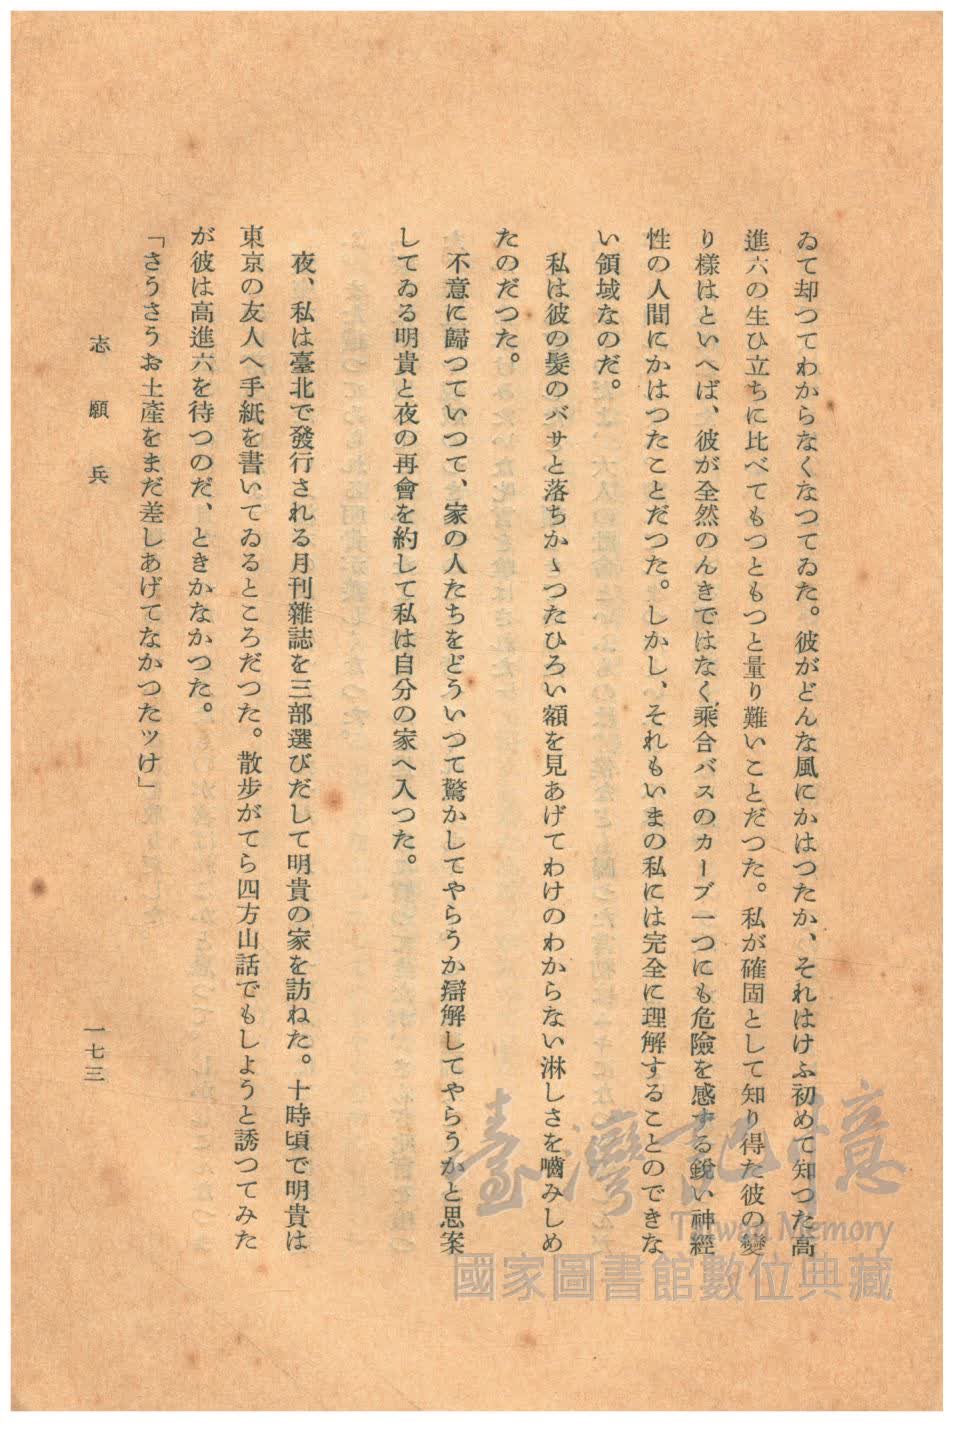 ゐて却つてわからなくなつてゐた。彼がどんな風にかはつたか、それはけふ初めて知つた高
進六の生ひ立ちに比べてもつともつと量り難いことだつた。私が確固として知り得た彼の變
り樣はといへば、彼が全然のんきではなく乘合バスのカーブ一つにも危險を感ずる鋭い神經
性の人間にかはつたことだつた。しかし、それもいまの私には完全に理解することのできな
い領域なのだ。
私は彼の髮のバサと落ちかゝつたひろい額を見あげてわけのわからない淋しさを嚙みしめ
たのだつた。
不意に歸つていつて、家の人たちをどういつて驚かしてやらうか辯解してやらうかと思案
してゐる明貴と夜の再會を約して私は自分の家へ入つた。
夜、私は臺北で發行される月刊雜誌を三部選びだして明貴の家を訪ねた。十時頃で明貴は
東京の友人へ手紙を書いてゐるところだつた。散步がてら四方山話でもしようと誘つてみた
が彼は高進六を待つのだ、ときかなかつた。
「さうさうお土產をまだ差しあげてなかつたッけ」
志願兵
一七三
臺灣記憶
Taiwan Memory
國家圖書館數位典藏